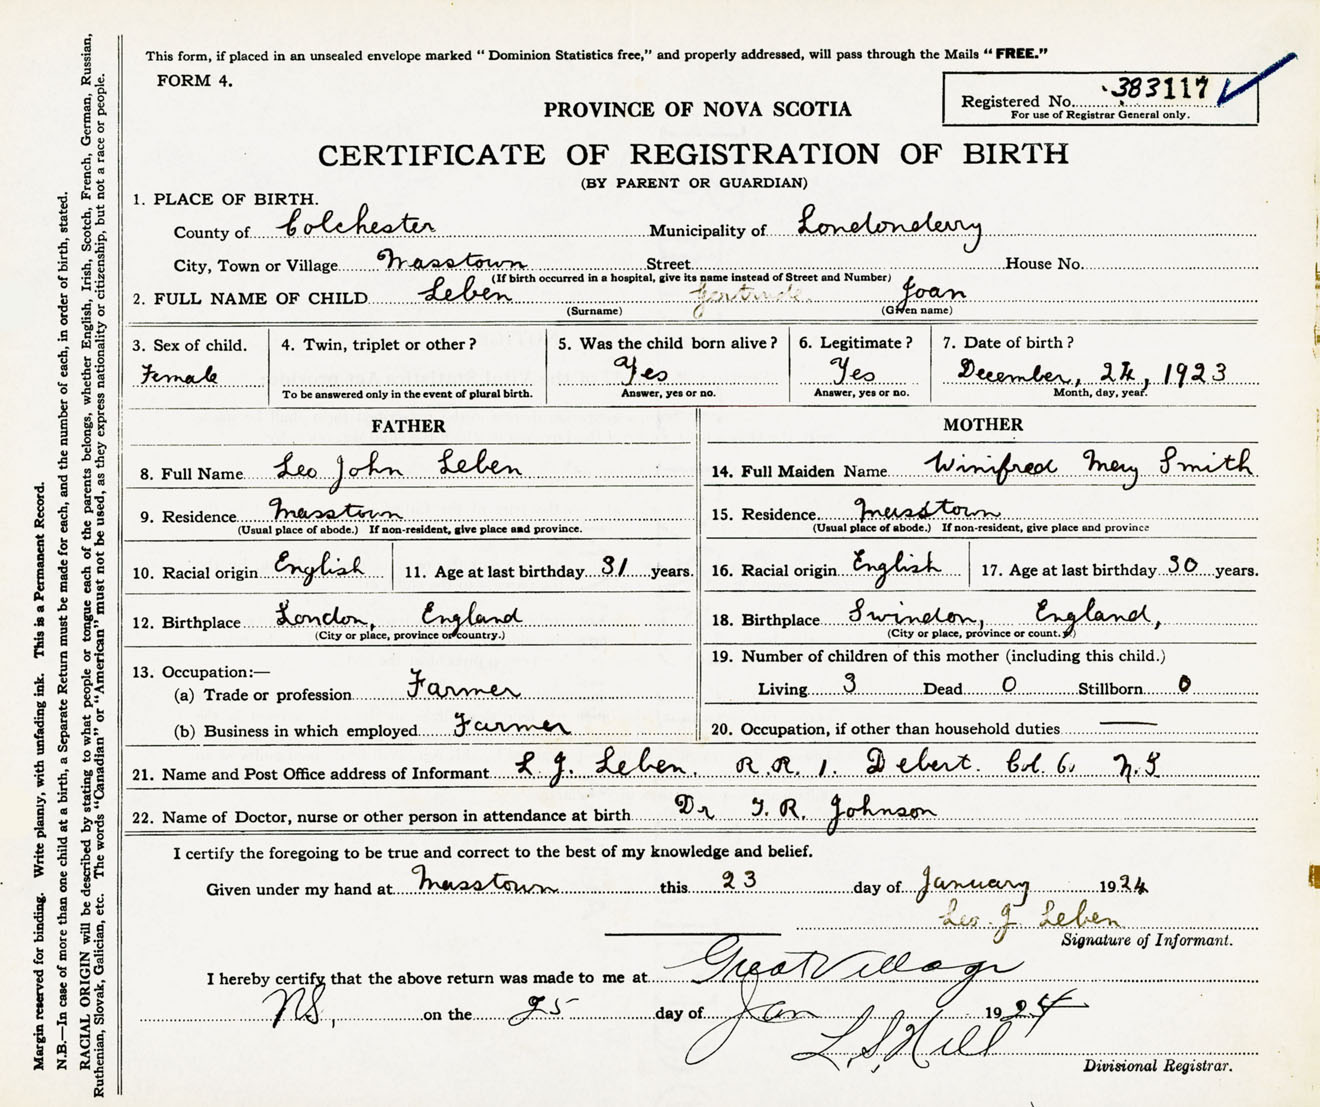 This form, if placed in an unsealed envelope marked "Dominion Statistics free," and properly addressed, will pass through the Mails "FREE."
FORM 4.
Registered No. 383117
For use of Registrar General only.
PROVINCE OF NOVA SCOTIA
CERTIFICATE OF REGISTRATION OF BIRTH
(BY PARENT OR GUARDIAN)
1. PLACE OF BIRTH.
County of Colchester Municipality of Londonderry
City, Town or Village Masstown Street House No.
(If birth occurred in a hospital, give its name instead of Street and Number)
2. FULL NAME OF CHILD Leben Gertrude Joan
(Surname) (Given name)
3. Sex of child. 4. Twin, triplet or other? 5. Was the child born alive? 6. Legitimate? 7. Date of birth?
Female Yes Yes December, 24, 1923
To be answered only in the event of plural birth. Answer, yes or no. Answer, yes or no. Month, day, year.
FATHER MOTHER
8. Full Name Leo John Leben 14. Full Maiden Name Winifred Mary Smith
9. Residence Masstown 15. Residence Masstown
(Usual place of abode.) If non-resident, give place and province. (Usual place of abode.) If non-resident, give place and province
10. Racial origin English 11. Age at last birthday 31 years. 16. Racial origin English 17. Age at last birthday 30 years.
12. Birthplace London, England 18. Birthplace Swindon, England,
(City or place, province or country.) (City or place, province or count.y)
13. Occupation:— 19. Number of children of this mother (including this child.)
(a) Trade or profession Farmer Living 3 Dead 0 Stillborn 0
(b) Business in which employed Farmer 20. Occupation, if other than household duties
21. Name and Post Office address of Informant L. J. Leben. R.R. 1. Debert. Col. Co N.S
22. Name of Doctor, nurse or other person in attendance at birth Dr T. R. Johnson
I certify the foregoing to be true and correct to the best of my knowledge and belief.
Given under my hand at Masstown this 23 day of January 1924
Leo. J Leben
Signature of Informant.
I hereby certify that the above return was made to me at Great Village
NS, on the 25 day of Jan 1924
L. S. Hill
Divisional Registrar.
Margin reserved for binding. Write plainly, with unfading ink. This is a Permanent Record.
N.B.—In case of more than one child at a birth, a Separate Return must be made for each, and the number of each, in order of birth, stated.
RACIAL ORIGIN will be described by stating to what people or tongue each of the parents belongs, whether English, Irish, Scotch, French, German, Russian,
Ruthenian, Slovak, Galician, etc. The words "Canadian" or "American" must not be used, as they express nationality or citizenship, but not a race or people.